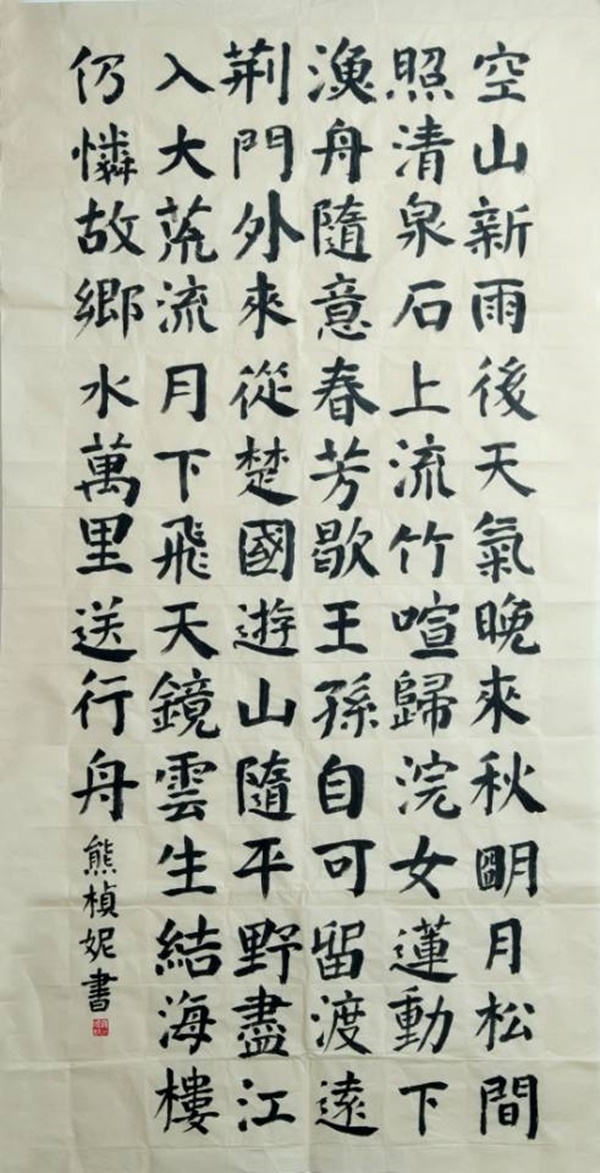 空山新雨後天氣晚來秋朙月松間
照清泉石上流竹喧歸浣女蓮動下
漁舟隨意春芳歇王孫自可留渡遠
荆門外來從楚國遊山隨平野盡江
入大荒流月下飛天鏡雲生結海樓
仍憐故鄉水萬里送行舟
熊楨妮書